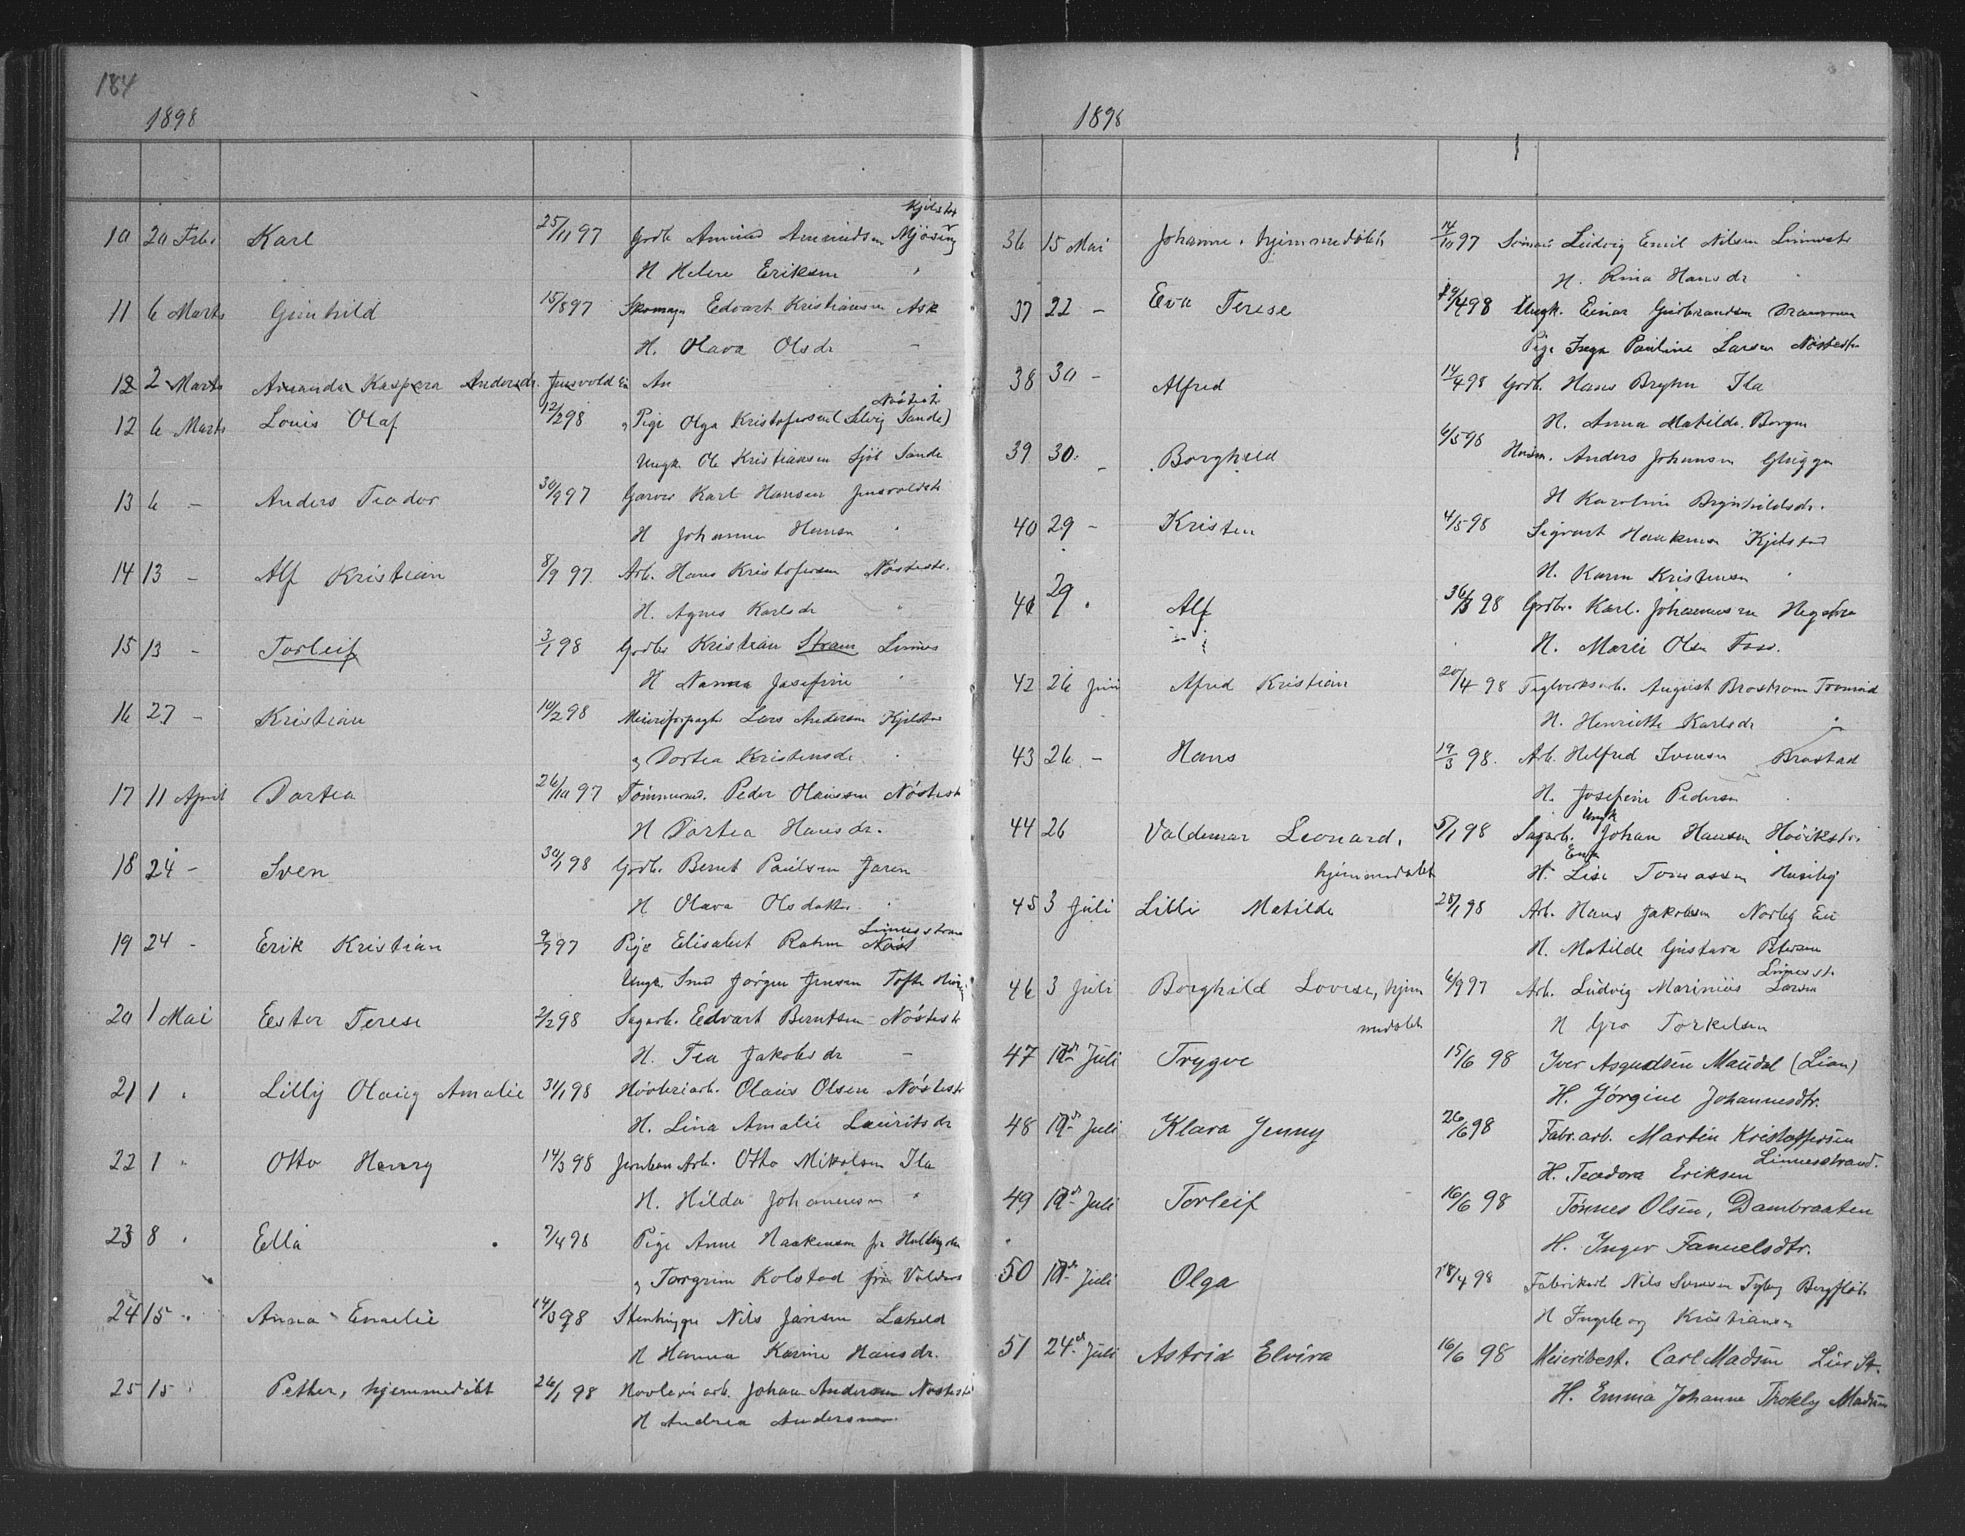 184
1898
10 20 Febr Karl 25/11 97 Grdb. Amund Amundsen Mjøsing
Kjelstad
H Helene Eriksen "
11 6 Marts Gunhild 15/8 97 Skomager Edvart Kristiansen Ask
H. Olava Olsdr –
12 2 Marts Amanda Kaspera Andersdr. Jensvold An
12 6 Marts Louis Olaf 12/2 98 Pige Olga Kristofersen (Selvig Sande)
Nøstest
Ungk. Ole Kristiansen Sjøl Sande
13 6 – Anders Teodor 30/9 97 Garver Karl Hansen Jensvoldstr
H Johanne Hansen "
14 13 – Alf Kristian 8/9 97. Arb. Hans Kristofersen Nøstestr.
H. Agnes Karlsdr "
15 13 – Torleif 3/1 98 Grdbr Kristian Strøm Linnes
H Nanna Josefine "
16 27 – Kristian 10/2 98 Meieriforpagter Lars Andersen Kjelstad
" Dortea Kristensdr. "
17 11 April Dortea 26/10 97 Tømmermd. Peder Olaussen Nøstestr
H Dortea Hansdr.
18 24 – Sven 30/1 98 Grdb. Bernt Paulsen Jaren
H Olava Olsdatter "
19 24 – Erik Kristian 9/7 97 Pige Elisabet Rahm Nøst
Linnesstrand
Ungk. Smed Jørgen Jensen Tofte Hurum
20 1 Mai Ester Terese 2/2 98 Sagarb. Edvart Berntsen Nøstestr
H. Tea Jakobsdr –
21 1 " Lilly Olaug Amalie 31/1 98 Høvleriarb. Olaus Olsen Nøstestr
H. Lina Amalie Lauritsdr
22 1 " Otto Henry 14/3 98 Jernban Arb. Otto Mikalsen Ila
H. Hilda Johannesen "
23 8 " Ella 7/4 98 Pige Anne Haakensen fr
" Torgrim Kolstad fra Valders
24 15 " Anna Emelie 14/3 98 Stenhugger Nils Jansen Lahell
H Hanna Karine Hansdr.
25 15 " Petter, hjemmedøbt 26/1 98 Hovleri arb. Johan Andersen Nøstestr
H Andrea Andersen
1898
36 15 Mai Johanne, hjemmedøbt 14/10 97 Ludvig Emil Nilsen Linnestr
H. Rina Hansdr "
37 22 – Eva Terese 19/4 98 Ungk. Einar Gudbrandsen Drammen
Pige Inga Pauline Larsen Nøstestr
38 30 – Alfred 14/4 98 Grdb. Hans Bryhn Ila
H. Anna Matilde Borgen
39 30 – Borghild 6/5 98 Husm. Anders Johansen Gluggen
H Karoline Brynhildsdr.
40 29 – Kristen 4/5 98 Sigvart Haakensen Kjelstad
H. Karen Kristensen "
41 29 " Alf 30/3 98 Grdbr. Karl Johannessen Hegsbro
H. Marie Olsen Foss.
42 26 Juni Alfred Kristian 20/4 98 Teglverksarb. August Brostrøm Tronrud
H. Henriette Karlsdr "
43 26 – Hans 19/3 98. Arb. Helfred Svensen Brastad
H. Josefine Pedersen "
44 26 Valdemar Leonard, 5/1 98 Sagarb. Ungk Johan Hansen Høvikstr.
hjemmedøbt H. Enke Lise Tomassen Huseby
45 3 Juli Lilli Matilde 28/1 98 Arb. Hans Jakobsen Nordby Eie
H. Matilde Gustava Petersen
46 3 Juli Borghild Lovise, hjem 6/9 97 Arb. Ludvig Marinius Larsen
Linnesstr.
medøbt H Gro Torkelsen
47 10de Juli Trygve 15/6 98 Iver Asmundsen Maudal (Lian)
H. Jørgine Johannesdtr.
48 10de Juli Klara Jenny 26/6 98 Fabr. arb. Martin Kristoffersen
Linnesstrand.
H. Teodora Eriksen
49 10de Juli Torleif 16/6 98 Tønnes Olsen, Dambraaten
H. Inger Samuelsdtr.
50 10de Juli Olga 18/4 98 Fabrikarb Nils Svensen Bergfløt
H Ingeborg Kristiansen
51 24de Juli Astrid Elvira 16/6 98 Meieribest. Carl Madsen Lier St.
H. Emma Johanne Madsen